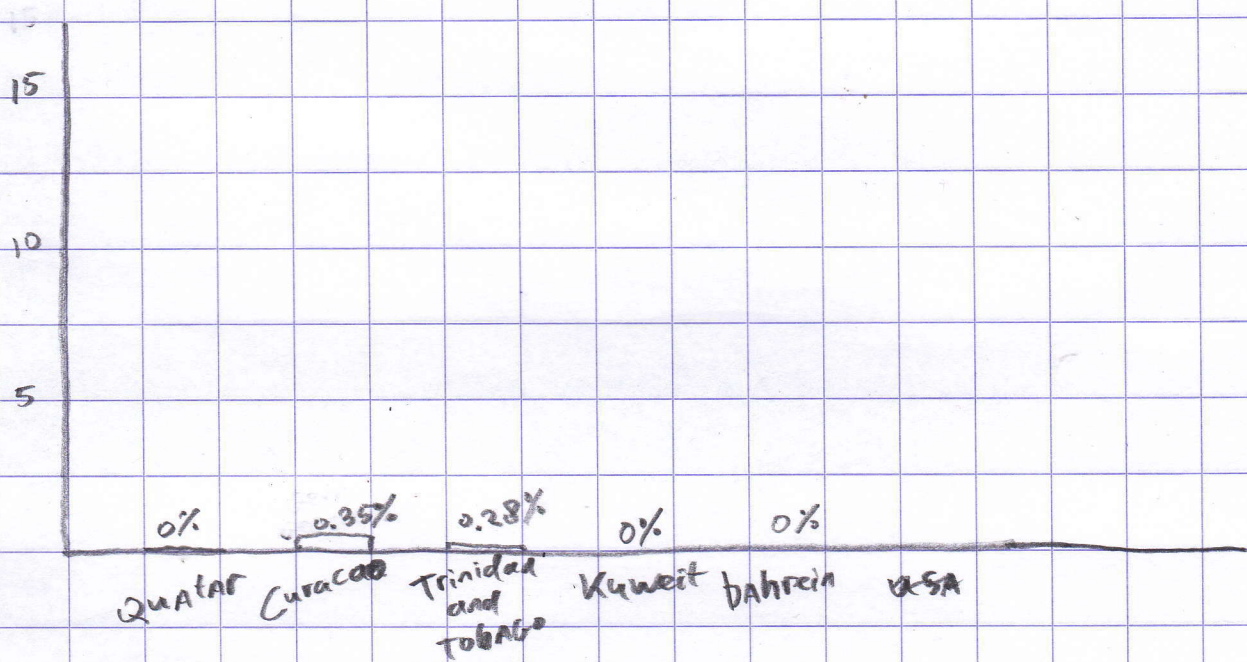 15
15
10
5
0%
0.35%
0.28%
0%
0%
QuAtAr
Curacao
Trinidad
and
TobAGo
Kuweit
bAhrein
USA